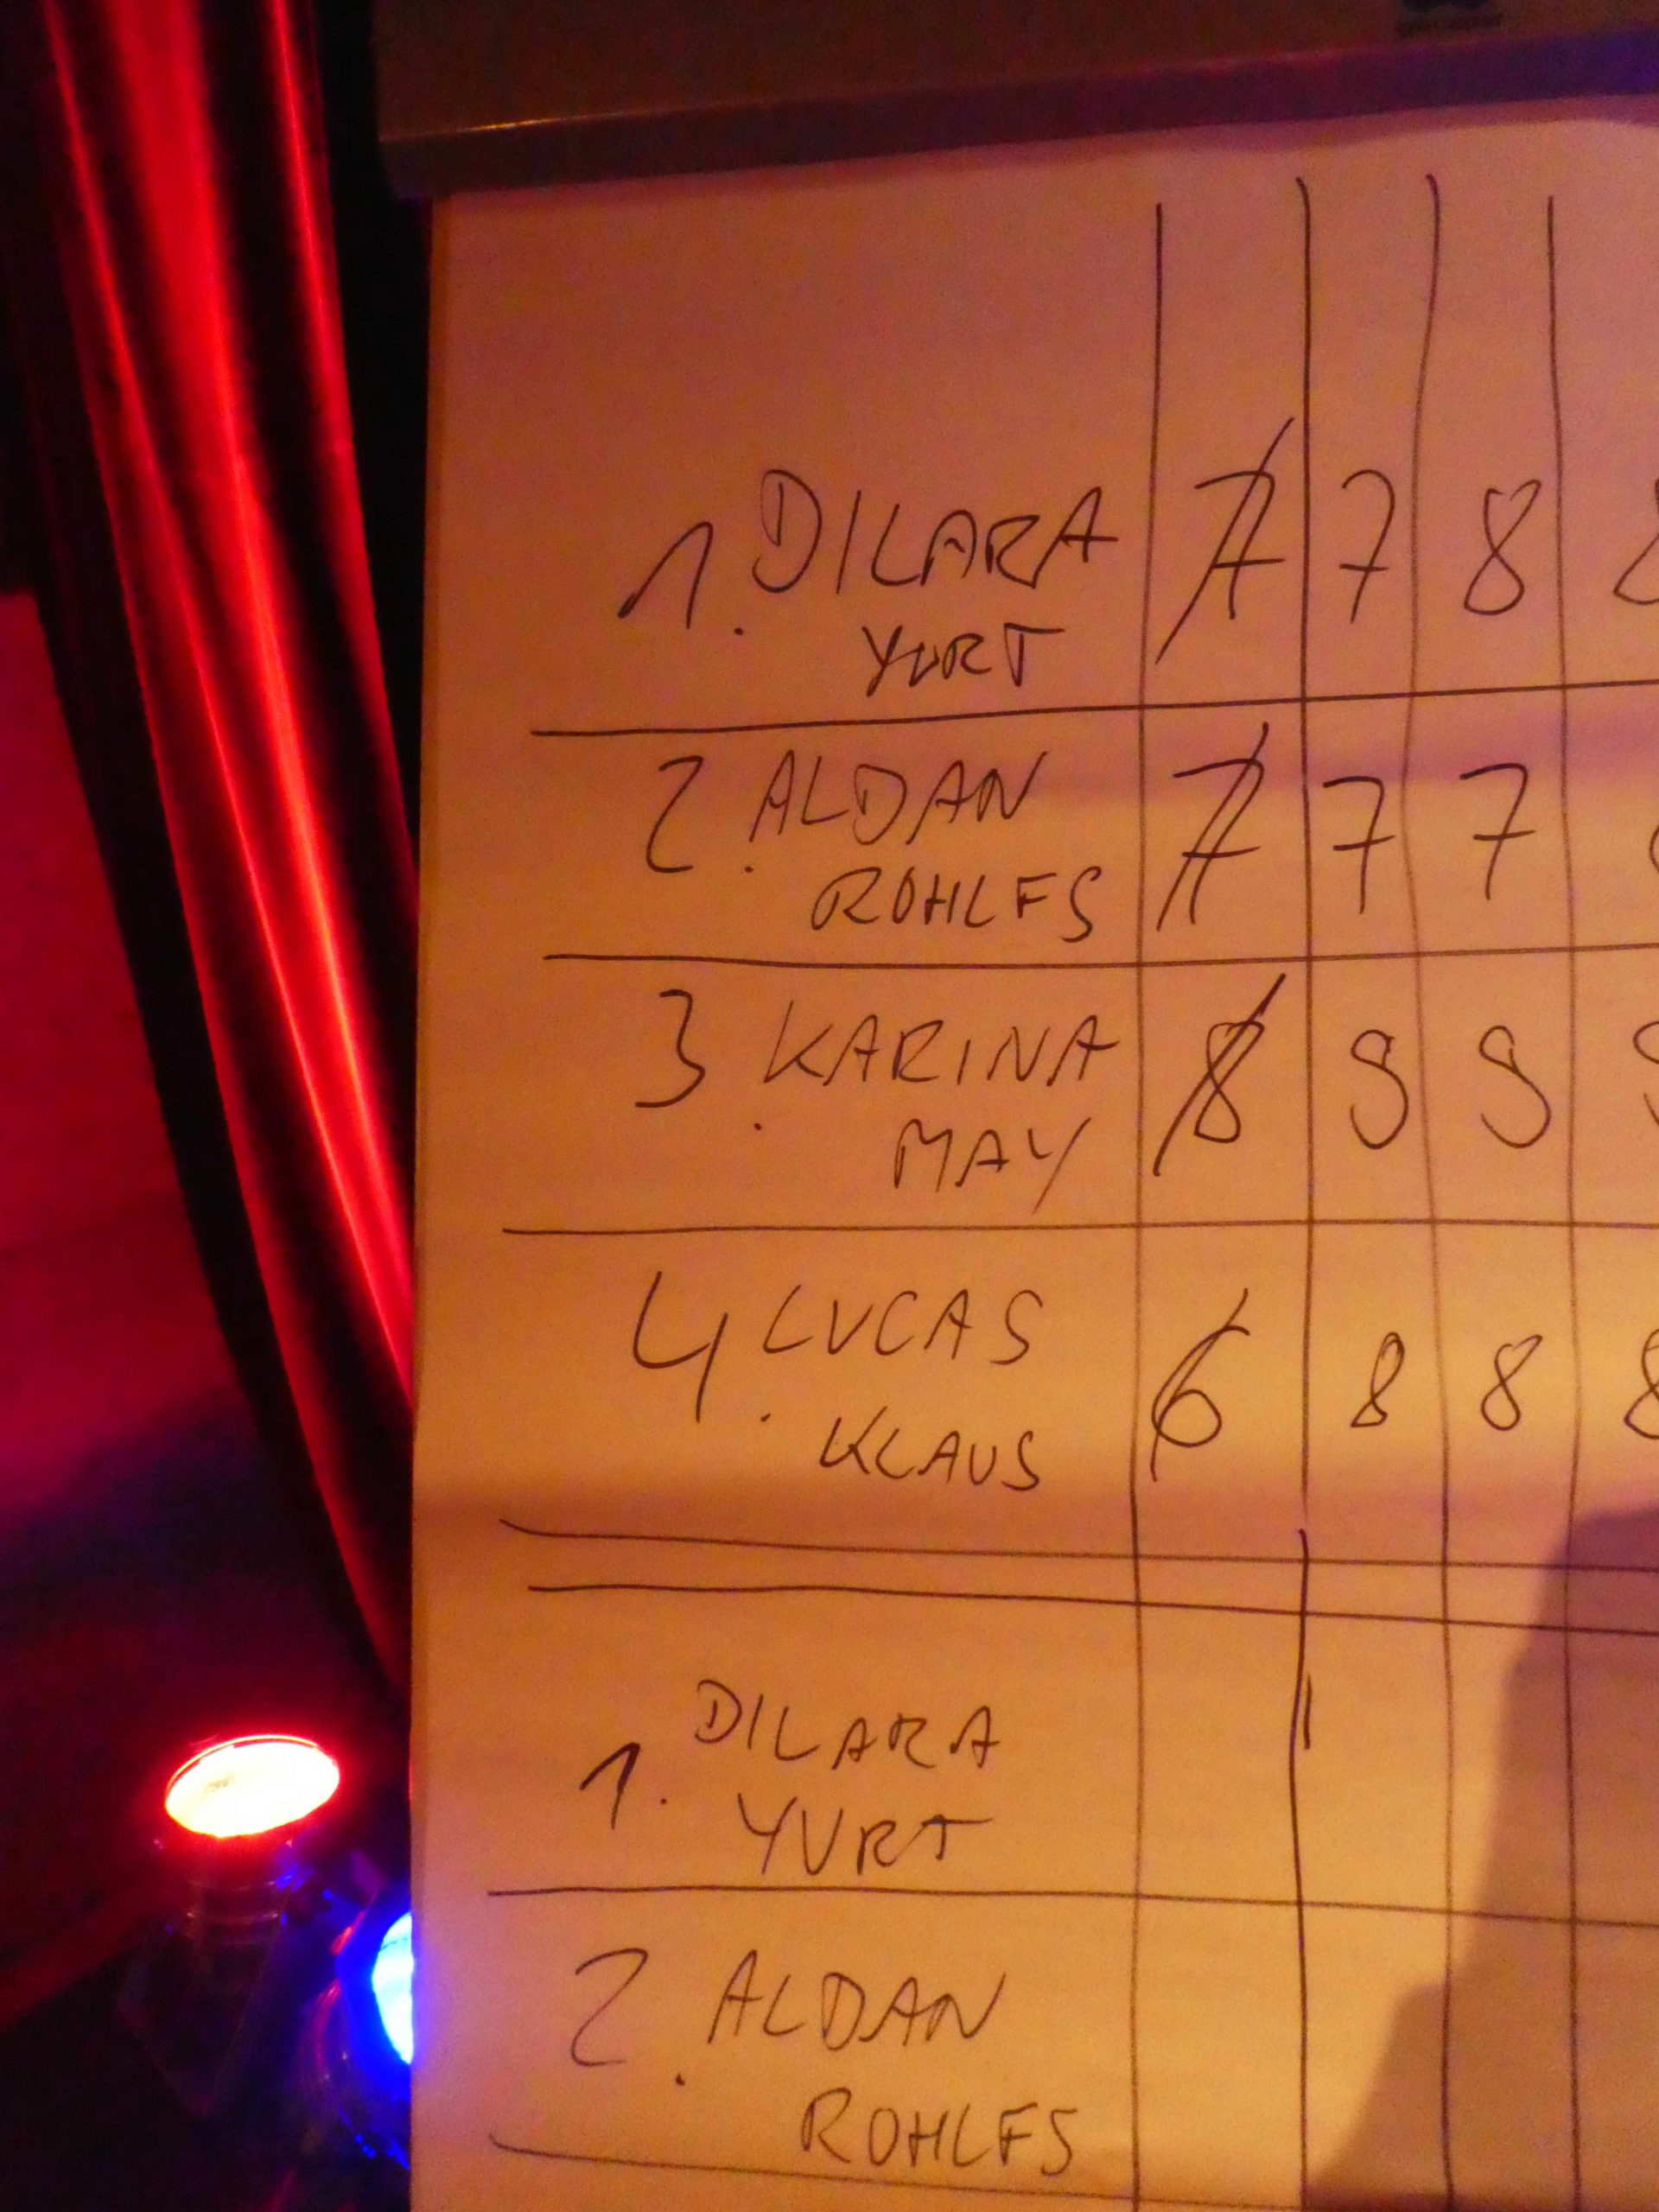 1. DILARA 7 7 8 8
YURT
2. ALDAN 7 7 7
ROHLFS
3. KARINA 8 9 9 9
MAY
4. LUCAS 6 8 8 8
KLAUS
1. DILARA
YURT
2. ALDAN
ROHLFS